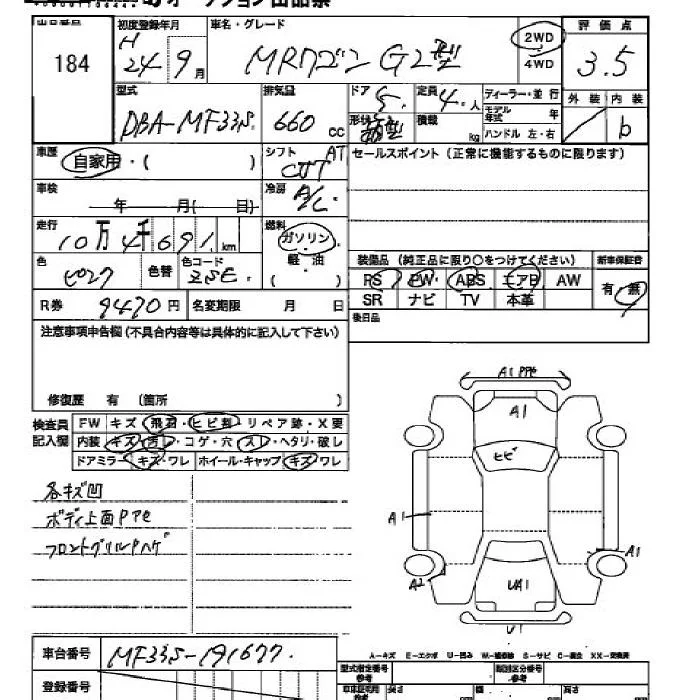 オークション出品票
出品番号 初度登録年月 車名・グレード 2WD 評価点
184 H 24年 9月 MRワゴン G 2型 4WD 3.5
型式 排気量 ドア 5 定員 4人 ディーラー・並行 外装 内装
DBA-MF33S 660cc 形状 積載 kg モデル年式 年 b
ハンドル 左・右
車歴 自家用・( ) シフト AT セールスポイント (正常に機能するものに限ります)
車検 年 月( 日) 冷房 A/C
走行 10万4千691km 燃料 ガソリン
軽・油
( )
色 色替 色コード ZSE 装備品 (純正品に限り○をつけてください) 新車保証書
PS PW ABS エアB AW 有・無
R券 9470円 名変期限 月 日 SR ナビ TV 本革
注意事項申告欄(不具合内容等は具体的に記入して下さい) 後日品
修復歴 有 (箇所 )
検査員記入欄 FW キズ・飛石・ヒビ割・リペア跡・X要
内装 キズ・汚レ・コゲ・穴・スレ・ヘタリ・破レ
ドアミラー キズ・ワレ ホイール・キャップ キズ・ワレ
各キズ凹
ボディ上面
フロントグリルPハゲ
A1
A1
ヒビ
A1
A1
A2
UA1
U1
車台番号 MF33S-191677
登録番号
A-キズ E-エクボ U-凹み W-補修跡 S-サビ C-腐食 XX-交換済
型式指定番号 参考 類別区分番号 参考
長さ 幅 高さ